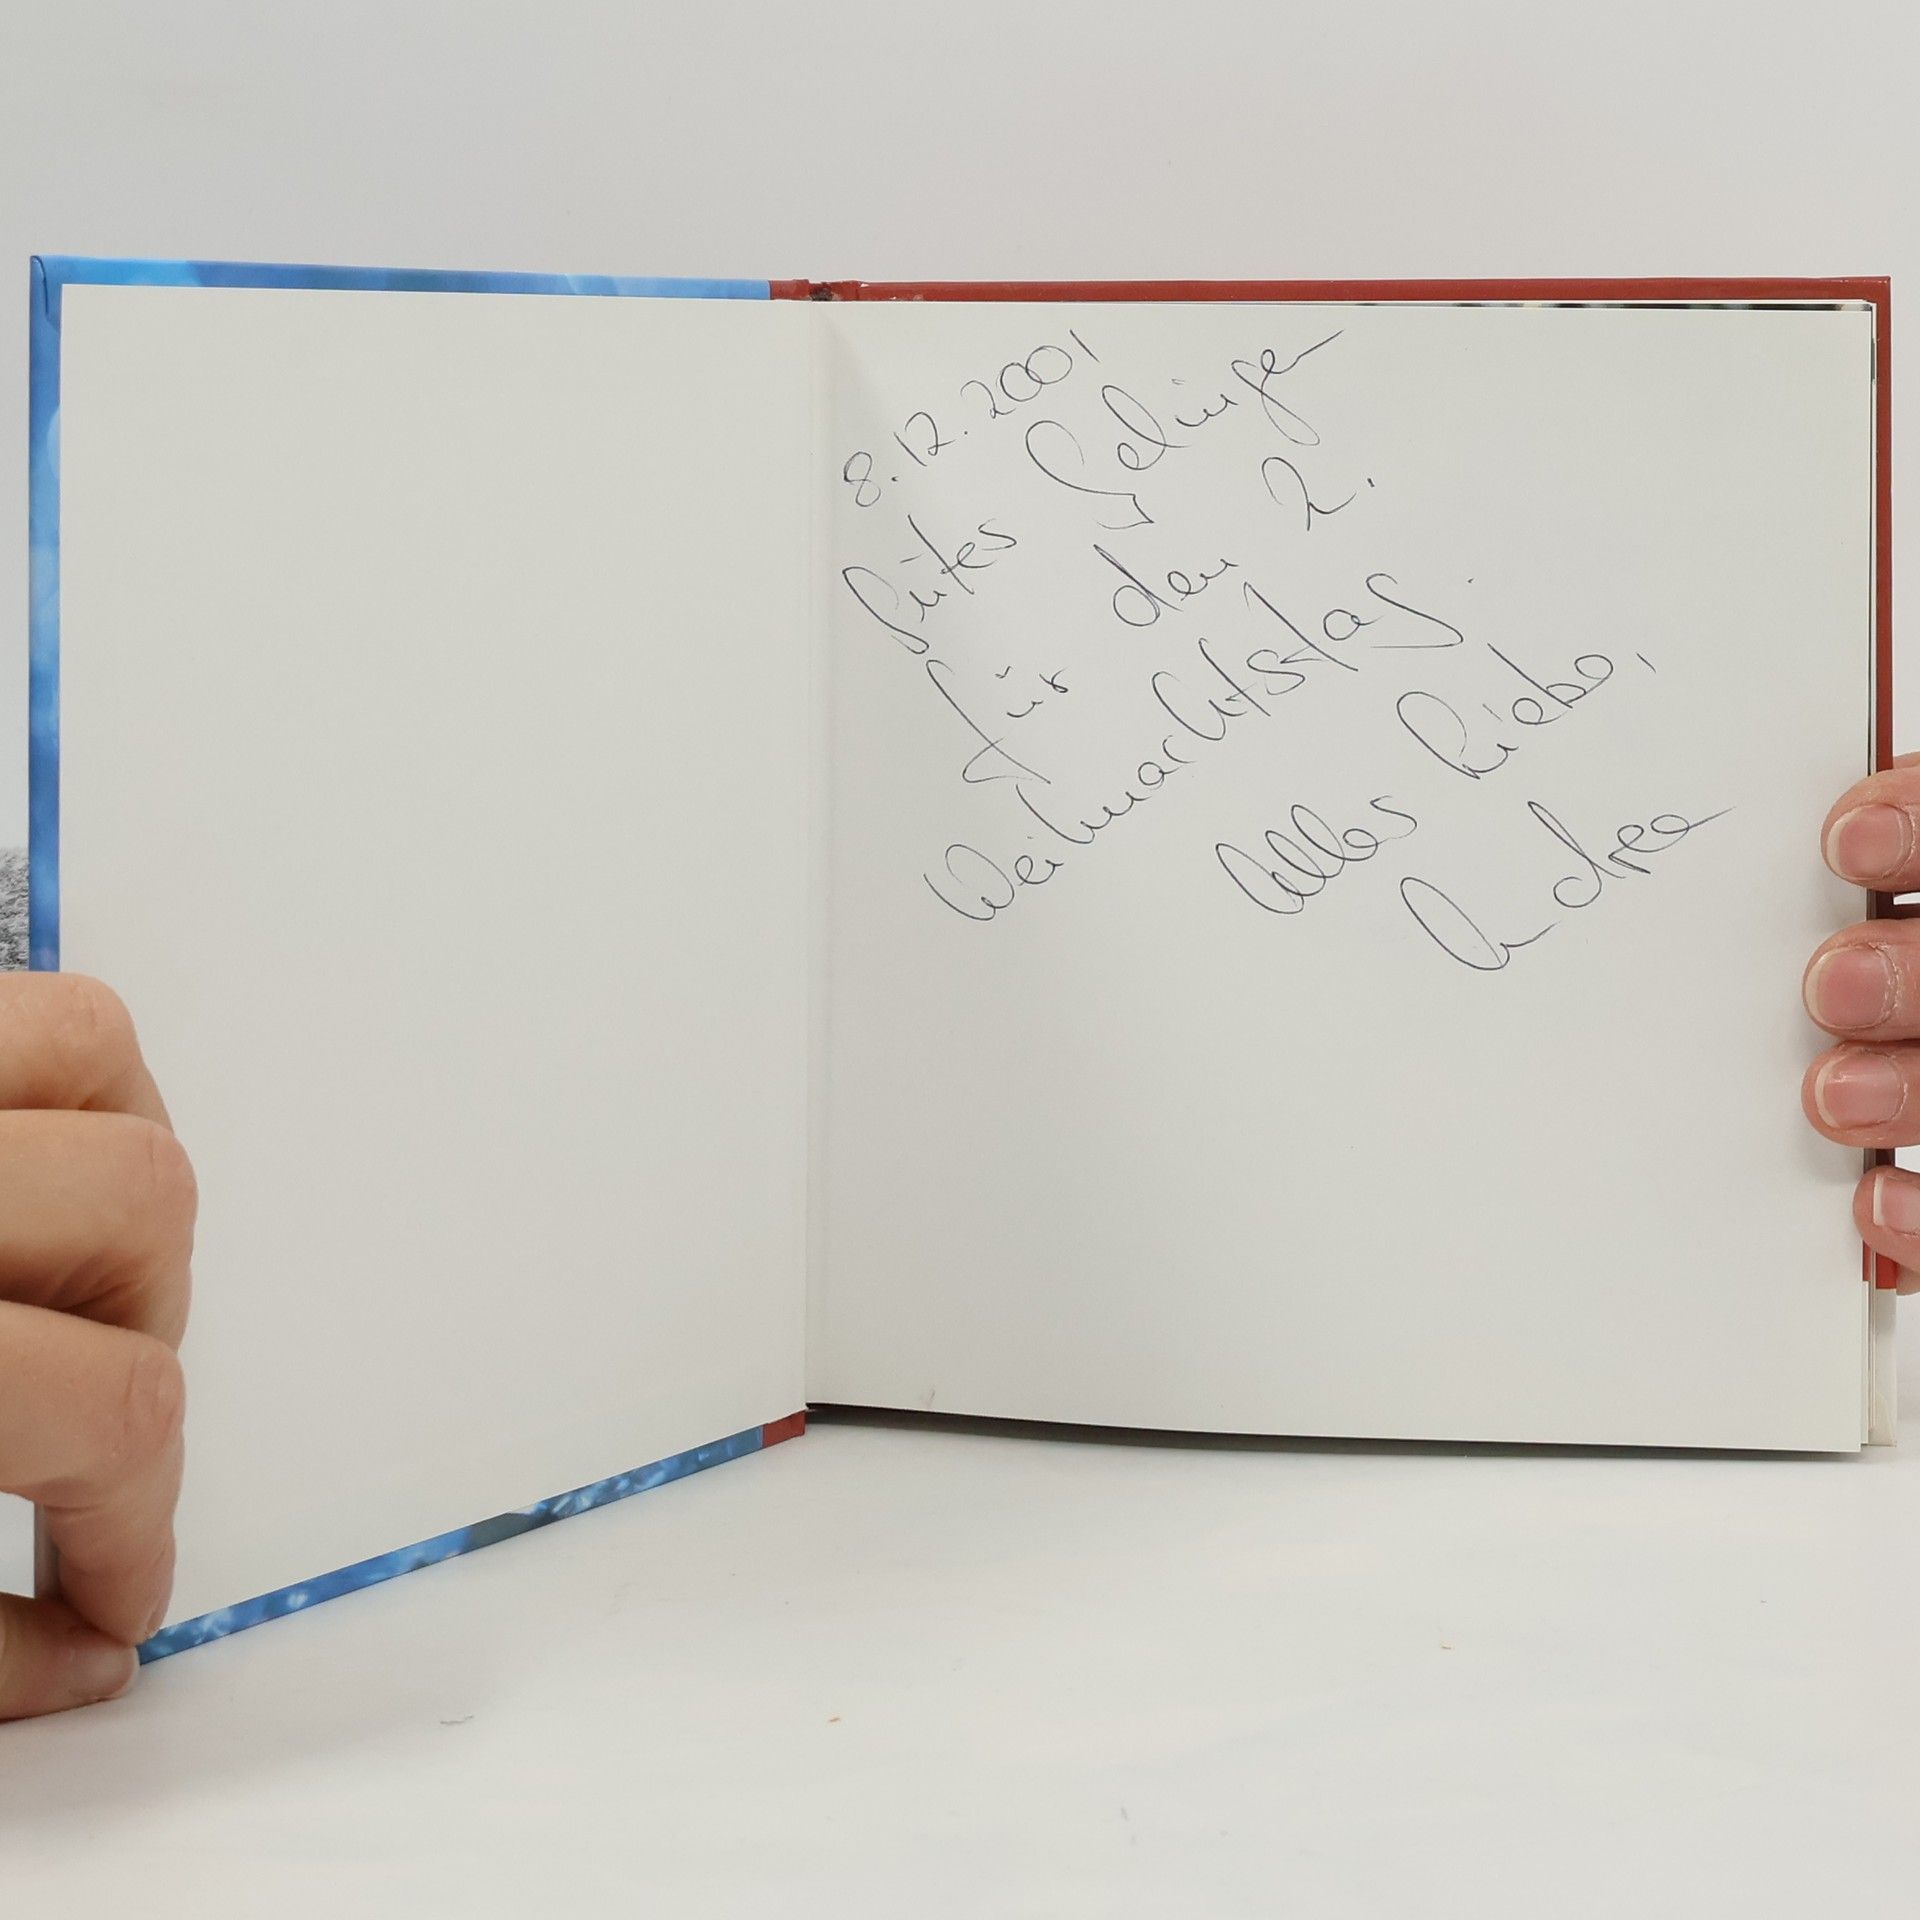 8.12.2001
Gutes Gelingen
für den 2.
Weihnachtstag.
Alles Liebe,
Andrea